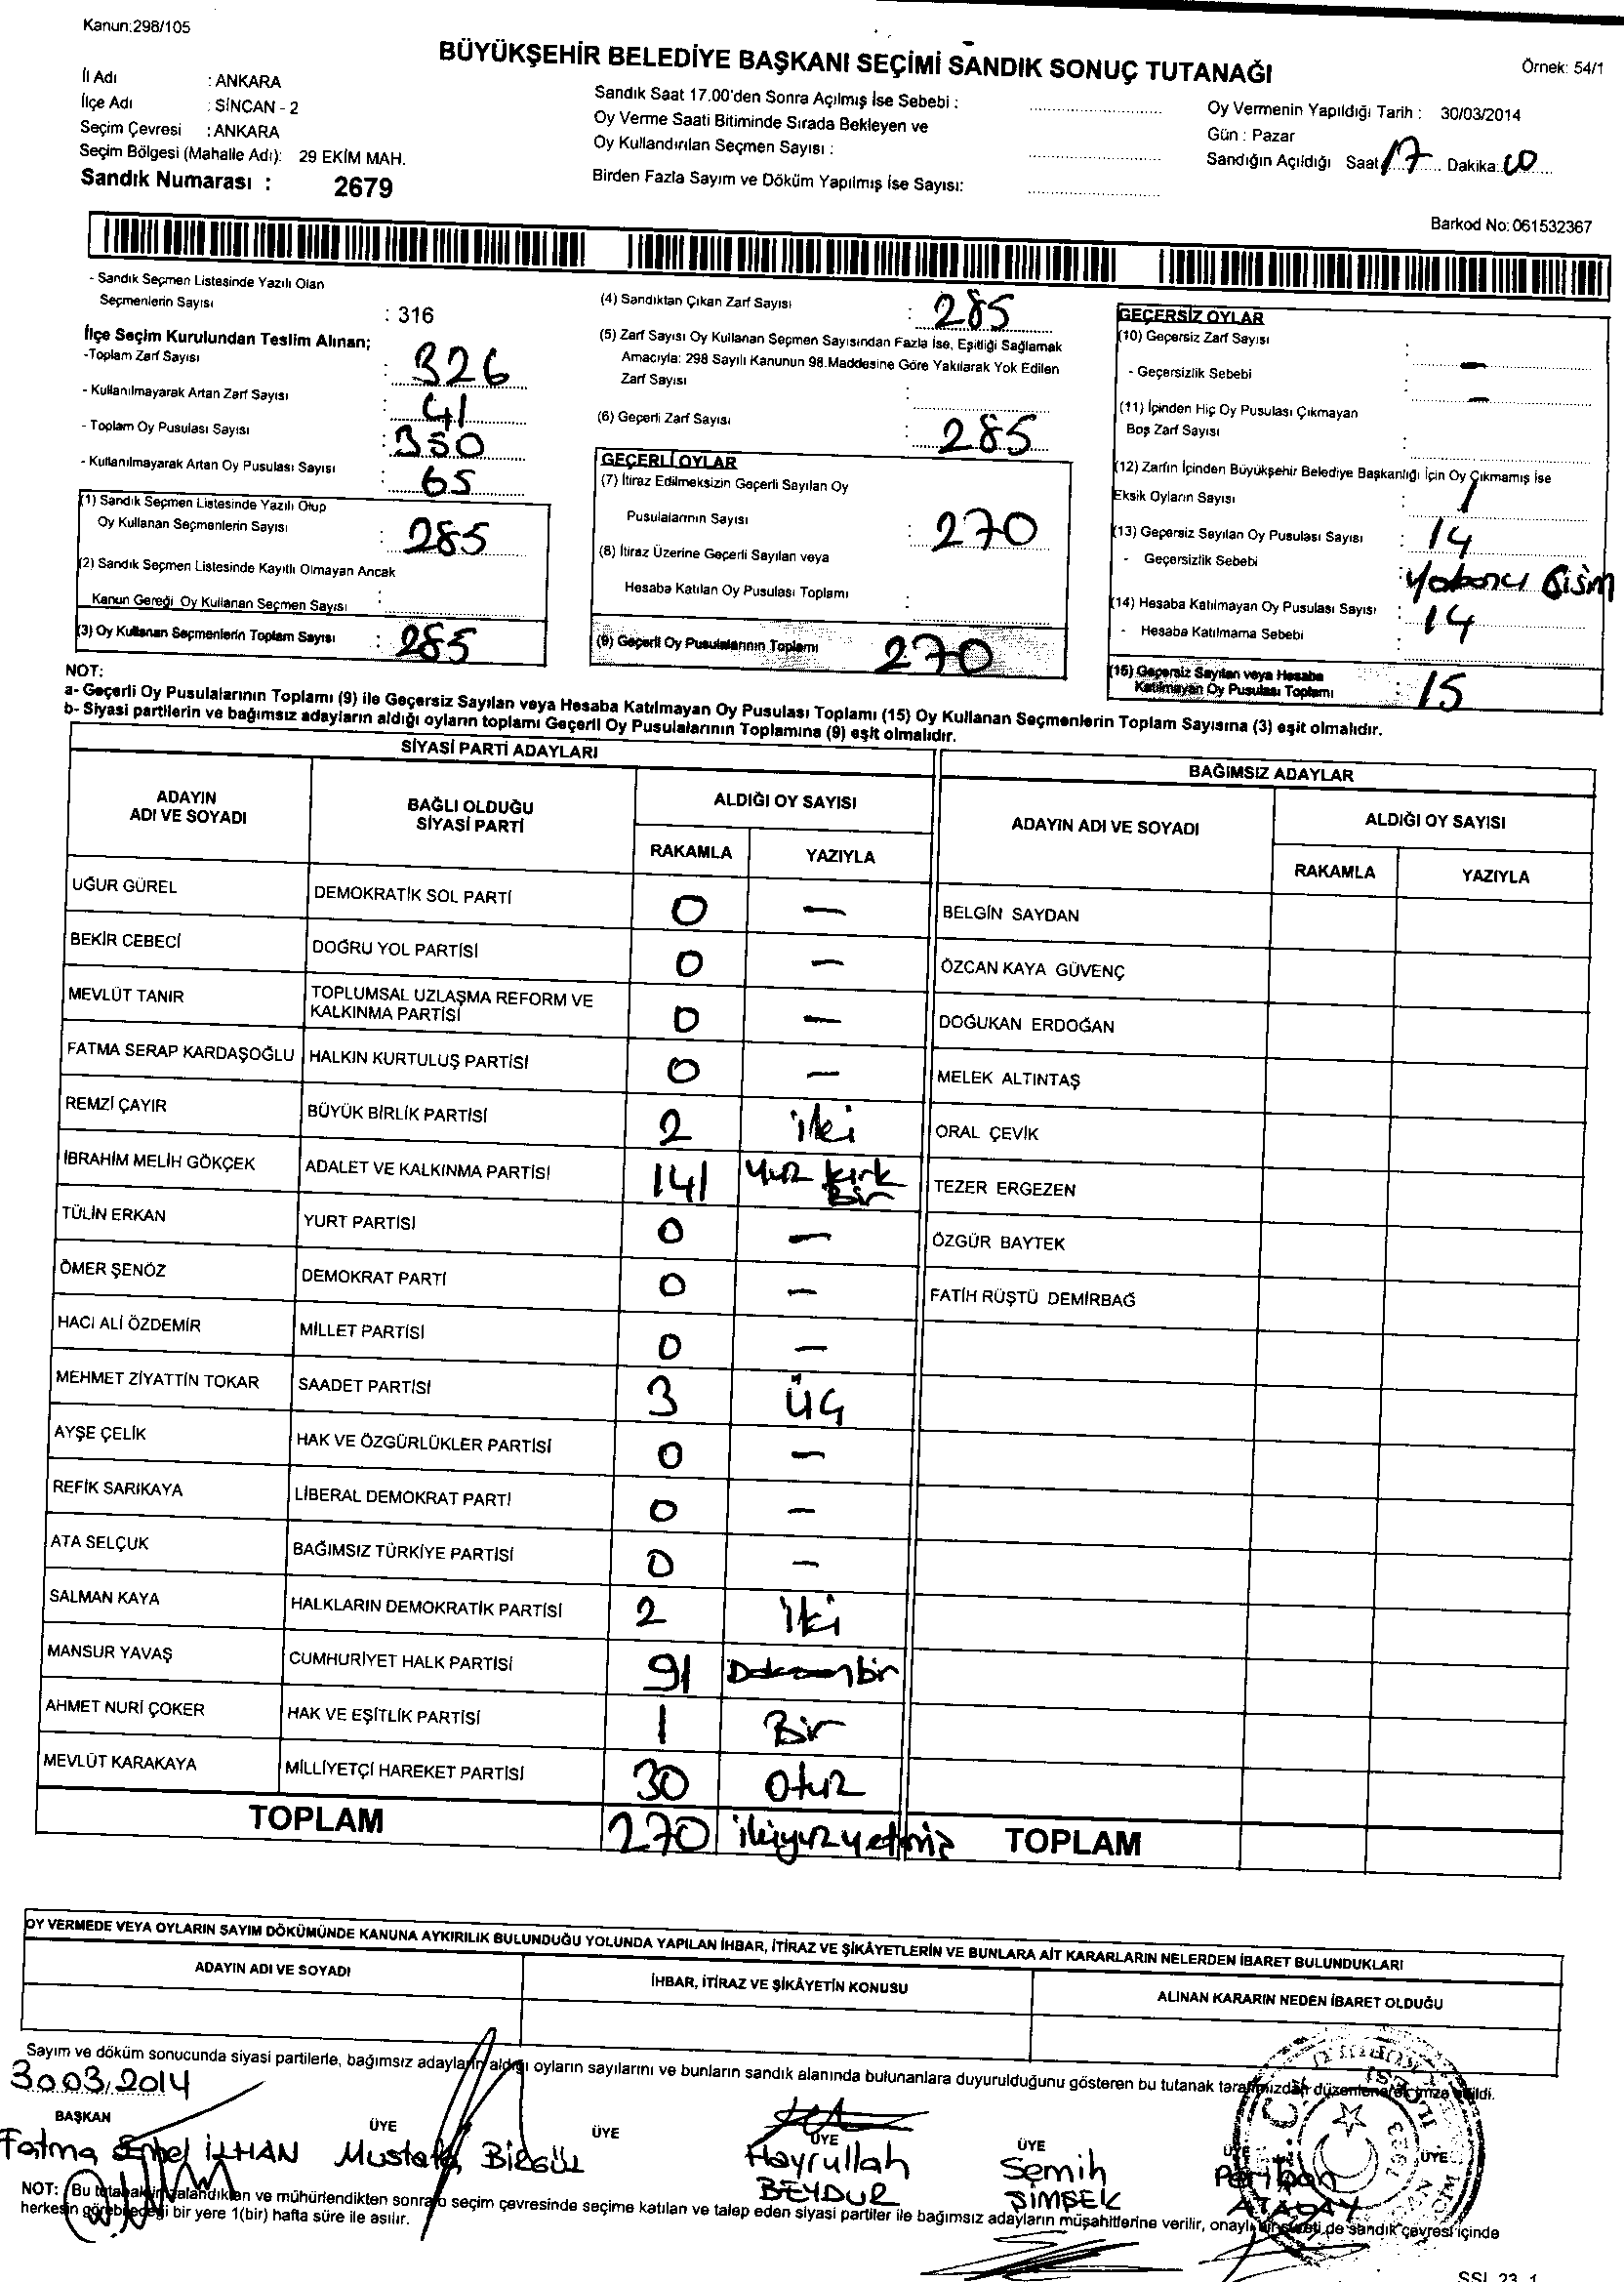 Kanun:298/105
BÜYÜKŞEHİR BELEDİYE BAŞKANI SEÇİMİ SANDIK SONUÇ TUTANAĞI
Örnek: 54/1
İl Adı : ANKARA
İlçe Adı : SİNCAN - 2
Seçim Çevresi : ANKARA
Seçim Bölgesi (Mahalle Adı): 29 EKİM MAH.
Sandık Numarası : 2679
Sandık Saat 17.00'den Sonra Açılmış İse Sebebi :
Oy Verme Saati Bitiminde Sırada Bekleyen ve
Oy Kullandırılan Seçmen Sayısı :
Birden Fazla Sayım ve Döküm Yapılmış İse Sayısı:
Oy Vermenin Yapıldığı Tarih : 30/03/2014
Gün : Pazar
Sandığın Açıldığı Saat 17 Dakika: 00
Barkod No: 061532367
- Sandık Seçmen Listesinde Yazılı Olan
Seçmenlerin Sayısı : 316
İlçe Seçim Kurulundan Teslim Alınan;
-Toplam Zarf Sayısı : 326
- Kullanılmayarak Artan Zarf Sayısı : 41
- Toplam Oy Pusulası Sayısı : 350
- Kullanılmayarak Artan Oy Pusulası Sayısı : 65
(1) Sandık Seçmen Listesinde Yazılı Olup
Oy Kullanan Seçmenlerin Sayısı : 285
(2) Sandık Seçmen Listesinde Kayıtlı Olmayan Ancak
Kanun Gereği Oy Kullanan Seçmen Sayısı :
(3) Oy Kullanan Seçmenlerin Toplam Sayısı : 285
(4) Sandıktan Çıkan Zarf Sayısı : 285
(5) Zarf Sayısı Oy Kullanan Seçmen Sayısından Fazla İse, Eşitliği Sağlamak
Amacıyla: 298 Sayılı Kanunun 98.Maddesine Göre Yakılarak Yok Edilen
Zarf Sayısı :
(6) Geçerli Zarf Sayısı : 285
GEÇERLİ OYLAR
(7) İtiraz Edilmeksizin Geçerli Sayılan Oy
Pusulalarının Sayısı : 270
(8) İtiraz Üzerine Geçerli Sayılan veya
Hesaba Katılan Oy Pusulası Toplamı :
(9) Geçerli Oy Pusulalarının Toplamı 270
GEÇERSİZ OYLAR
(10) Geçersiz Zarf Sayısı : -
- Geçersizlik Sebebi : -
(11) İçinden Hiç Oy Pusulası Çıkmayan
Boş Zarf Sayısı :
(12) Zarfın İçinden Büyükşehir Belediye Başkanlığı İçin Oy Çıkmamış İse
Eksik Oyların Sayısı : 1
(13) Geçersiz Sayılan Oy Pusulası Sayısı : 14
- Geçersizlik Sebebi : Yabancı Cisim
(14) Hesaba Katılmayan Oy Pusulası Sayısı : 14
- Hesaba Katılmama Sebebi :
(15) Geçersiz Sayılan veya Hesaba
Katılmayan Oy Pusulası Toplamı : 15
NOT:
a- Geçerli Oy Pusulalarının Toplamı (9) ile Geçersiz Sayılan veya Hesaba Katılmayan Oy Pusulası Toplamı (15) Oy Kullanan Seçmenlerin Toplam Sayısına (3) eşit olmalıdır.
b- Siyasi partilerin ve bağımsız adayların aldığı oyların toplamı Geçerli Oy Pusulalarının Toplamına (9) eşit olmalıdır.
SİYASİ PARTİ ADAYLARI
ADAYIN ADI VE SOYADI BAĞLI OLDUĞU SİYASİ PARTİ ALDIĞI OY SAYISI
RAKAMLA YAZIYLA
UĞUR GÜREL DEMOKRATİK SOL PARTİ 0 -
BEKİR CEBECİ DOĞRU YOL PARTİSİ 0 -
MEVLÜT TANIR TOPLUMSAL UZLAŞMA REFORM VE KALKINMA PARTİSİ 0 -
FATMA SERAP KARDAŞOĞLU HALKIN KURTULUŞ PARTİSİ 0 -
REMZİ ÇAYIR BÜYÜK BİRLİK PARTİSİ 2 iki
İBRAHİM MELİH GÖKÇEK ADALET VE KALKINMA PARTİSİ 141 Yüz kırk Bir
TÜLİN ERKAN YURT PARTİSİ 0 -
ÖMER ŞENÖZ DEMOKRAT PARTİ 0 -
HACI ALİ ÖZDEMİR MİLLET PARTİSİ 0 -
MEHMET ZİYATTİN TOKAR SAADET PARTİSİ 3 ÜÇ
AYŞE ÇELİK HAK VE ÖZGÜRLÜKLER PARTİSİ 0 -
REFİK SARIKAYA LİBERAL DEMOKRAT PARTİ 0 -
ATA SELÇUK BAĞIMSIZ TÜRKİYE PARTİSİ 0 -
SALMAN KAYA HALKLARIN DEMOKRATİK PARTİSİ 2 iki
MANSUR YAVAŞ CUMHURİYET HALK PARTİSİ 91 bir
AHMET NURİ ÇOKER HAK VE EŞİTLİK PARTİSİ 1 Bir
MEVLÜT KARAKAYA MİLLİYETÇİ HAREKET PARTİSİ 30 Otuz
TOPLAM 270 ikiyüzyetmiş
BAĞIMSIZ ADAYLAR
ADAYIN ADI VE SOYADI ALDIĞI OY SAYISI
RAKAMLA YAZIYLA
BELGİN SAYDAN
ÖZCAN KAYA GÜVENÇ
DOĞUKAN ERDOĞAN
MELEK ALTINTAŞ
ORAL ÇEVİK
TEZER ERGEZEN
ÖZGÜR BAYTEK
FATİH RÜŞTÜ DEMİRBAĞ
TOPLAM
OY VERMEDE VEYA OYLARIN SAYIM DÖKÜMÜNDE KANUNA AYKIRILIK BULUNDUĞU YOLUNDA YAPILAN İHBAR, İTİRAZ VE ŞİKÂYETLERİN VE BUNLARA AİT KARARLARIN NELERDEN İBARET BULUNDUKLARI
ADAYIN ADI VE SOYADI İHBAR, İTİRAZ VE ŞİKÂYETİN KONUSU ALINAN KARARIN NEDEN İBARET OLDUĞU
Sayım ve döküm sonucunda siyasi partilerle, bağımsız adayların aldığı oyların sayılarını ve bunların sandık alanında bulunanlara duyurulduğunu gösteren bu tutanak tarafımızdan düzenlenerek imza edildi.
30.03.2014
BAŞKAN ÜYE ÜYE ÜYE ÜYE ÜYE ÜYE
Fatma İLHAN Mustafa BİRGÜL Hayrullah BEYDUR Semih ŞİMŞEK Perihan ATABAY
NOT: Bu tutanak imzalandıktan ve mühürlendikten sonra o seçim çevresinde seçime katılan ve talep eden siyasi partiler ile bağımsız adayların müşahitlerine verilir, onaylı bir sureti de sandık çevresi içinde
herkesin görebileceği bir yere 1(bir) hafta süre ile asılır.